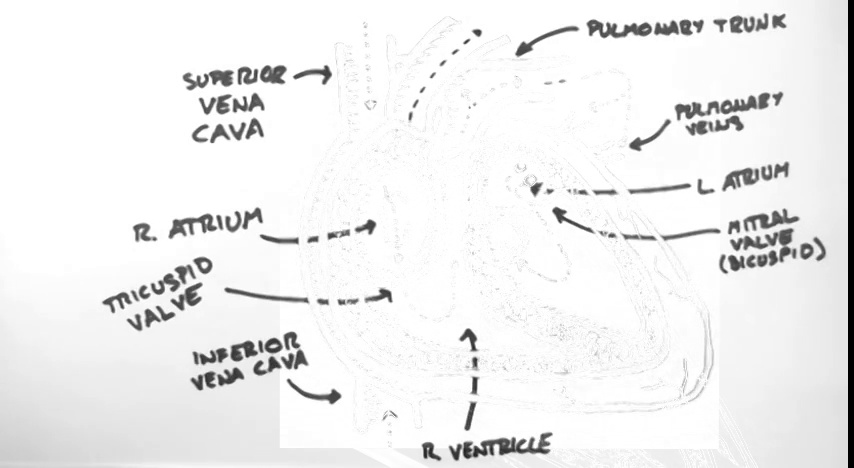 PULMONARY TRUNK
SUPERIOR
VENA
CAVA
PULMONARY
VEINS
L. ATRIUM
R. ATRIUM
MITRAL
VALVE
(BICUSPID)
TRICUSPID
VALVE
INFERIOR
VENA CAVA
R VENTRICLE